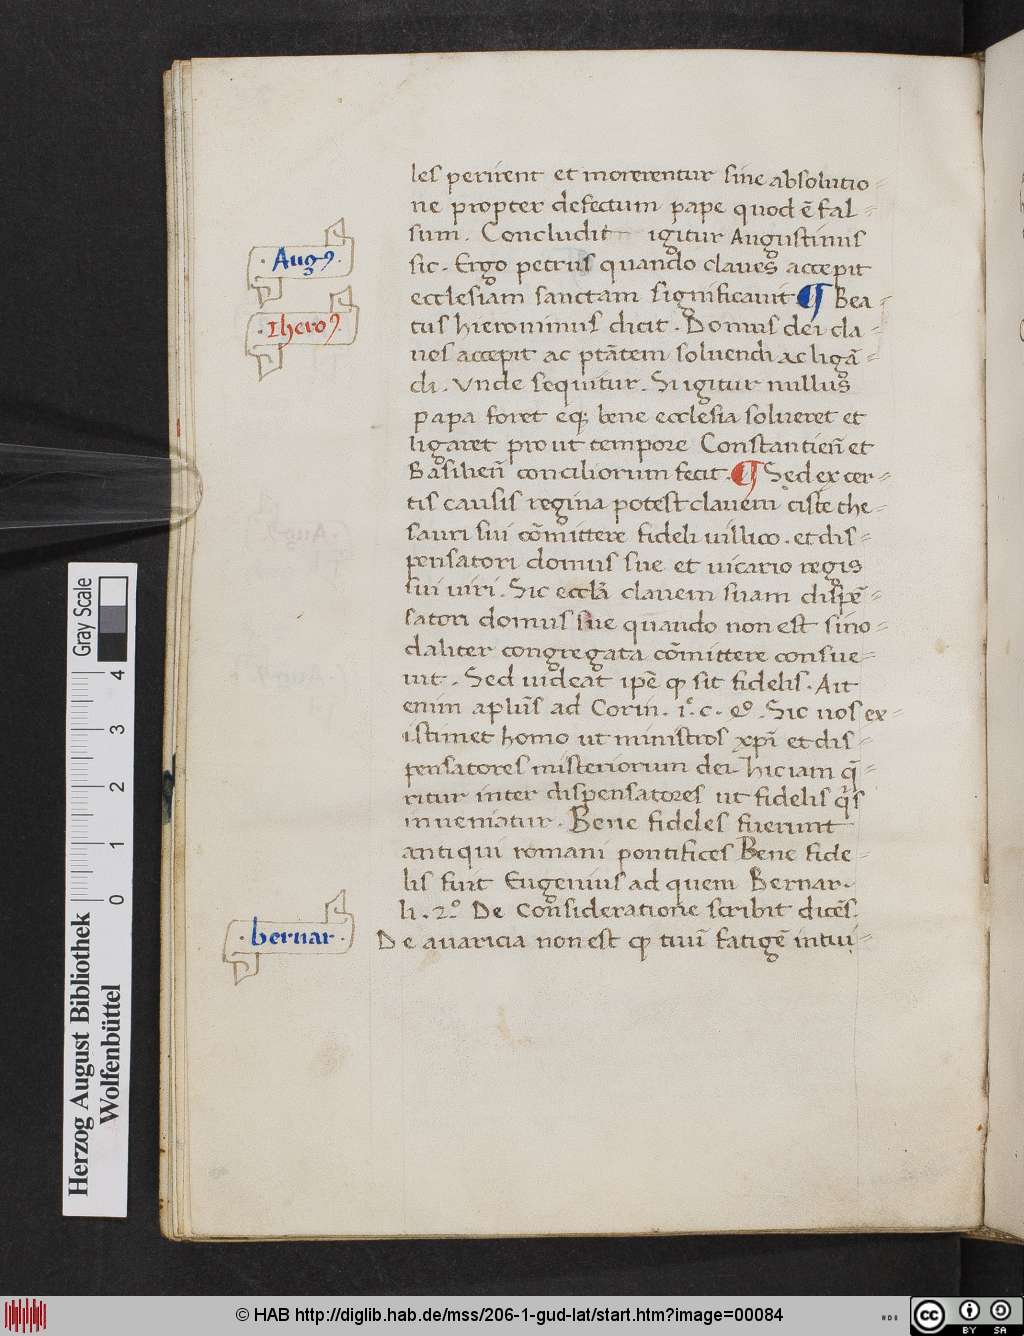 les perirent et morerentur sine absolutio=
ne propter defectum pape quod ē fal=
sum. Concludit igitur Augustinus
· Augꝰ ·
sic. Ergo petrus quando claves accepit
ecclesiam sanctam significavit ¶ Bea=
· Iheroꝰ ·
tus hieronimus dicit. Domus dei cla=
ves accepit ac ptātem solvendi ac ligā=
di. Vnde sequitur. Si igitur nullus
papa foret eq; bene ecclesia solveret et
ligaret prout tempore Constantieñ et
Basilieñ conciliorum fecit. ¶ Sed ex cer=
tis causis regina potest clavem ciste the=
sauri sui cōmittere fideli villico. et dis=
pensatori domus sue et vicario regis
sui viri. Sic eccl̄a clavem suam dispē=
satori domus sue quando non est sino=
daliter congregata cōmittere consue=
vit. Sed videat ipē ꝙ sit fidelis. Ait
enim apl̄us ad Corin. 1.º c. 4º. Sic nos ex=
istimet homo ut ministros xp̄i et dis=
pensatores misteriorum dei hic iam q̄=
ritur inter dispensatores ut fidelis q̄s
inveniatur. Bene fideles fuerunt
antiqui romani pontifices Bene fide=
lis fuit Eugenius ad quem Bernar.
li. 2º De Consideratione scribit dicēs.
· bernar ·
De avaricia non est ꝙ tuū fatigē intui=
Herzog August Bibliothek
Wolfenbüttel
0 1 2 3 4
Gray Scale
© HAB http://diglib.hab.de/mss/206-1-gud-lat/start.htm?image=00084
cc BY SA